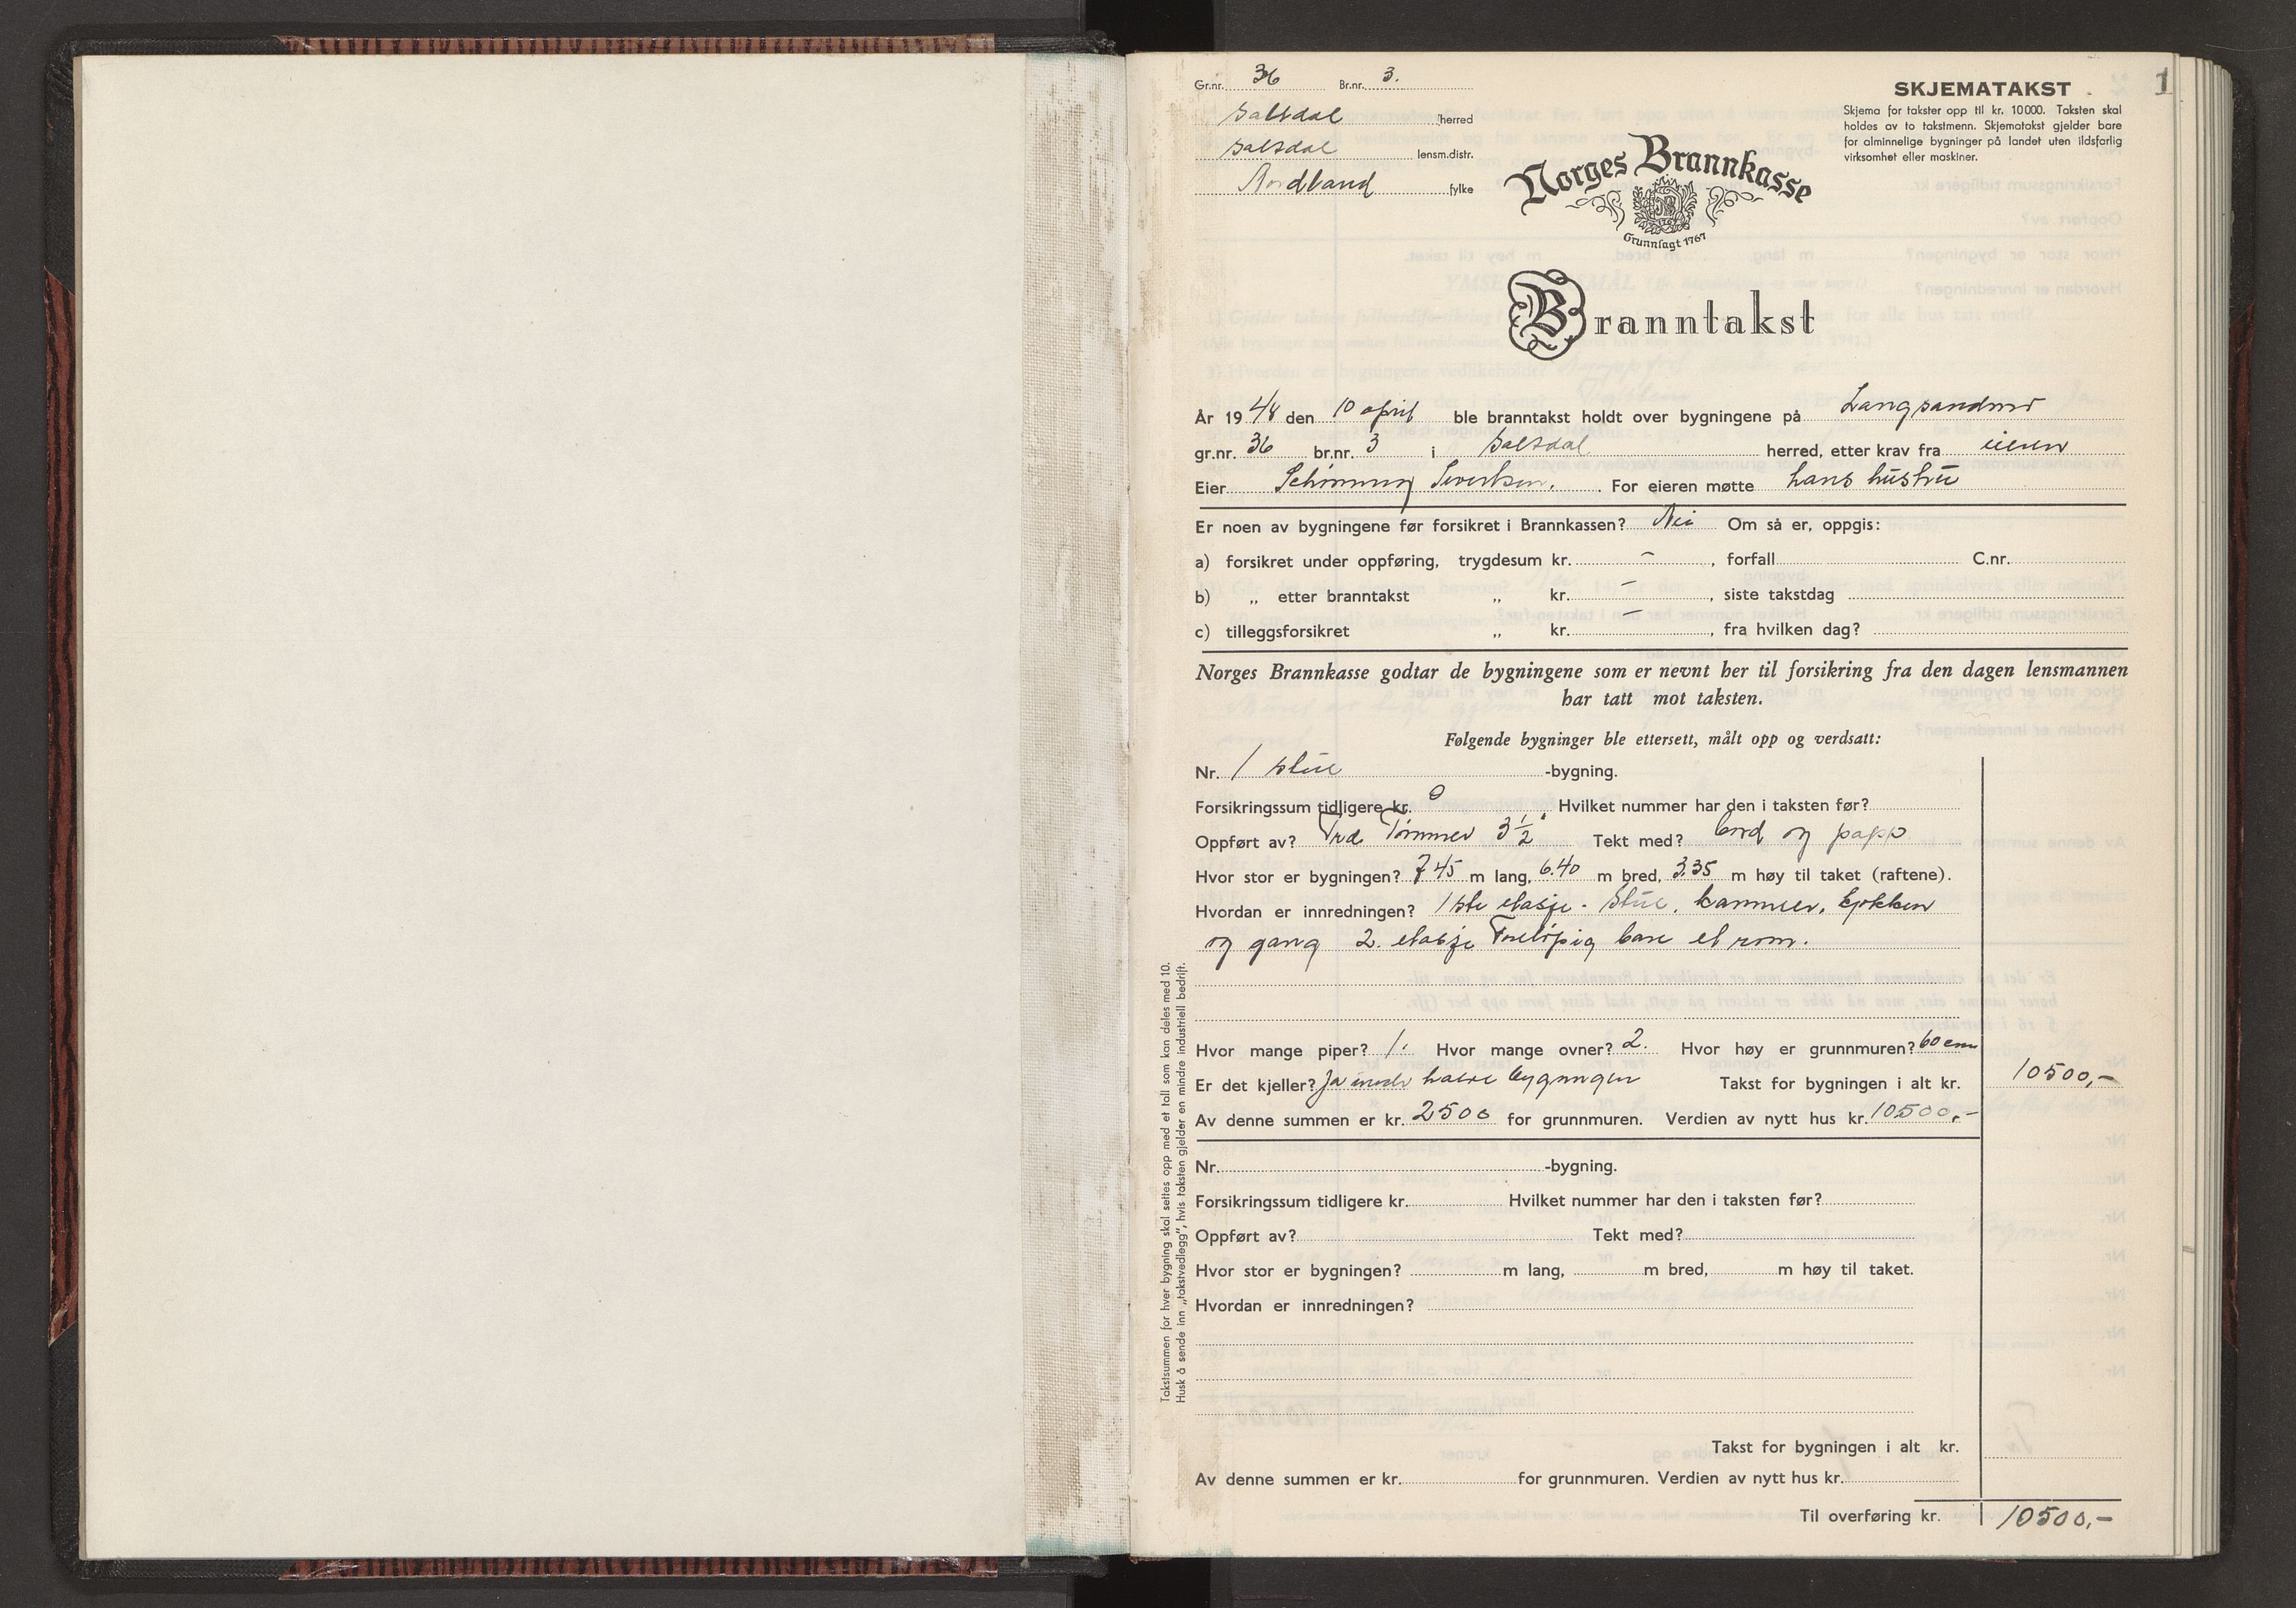 1
Gr.nr. 36 Br.nr. 3.
Saltdal herred
Saltdal lensm.distr.
Nordland fylke
SKJEMATAKST
Skjema for takster opp til kr. 10000. Taksten skal
holdes av to takstmenn. Skjematakst gjelder bare
for alminnelige bygninger på landet uten ildsfarlig
virksomhet eller maskiner.
Norges Brannkasse
Grunnlagt 1767
Branntakst
År 1948 den 10 april ble branntakst holdt over bygningene på Langsandmo
gr.nr. 36 br.nr. 3 i Saltdal herred, etter krav fra eieren
Eier Schønning Sivertsen. For eieren møtte hans hustru
Er noen av bygningene før forsikret i Brannkassen? Nei Om så er, oppgis:
a) forsikret under oppføring, trygdesum kr. – , forfall C.nr.
b) „ etter branntakst „ kr. – , siste takstdag
c) tilleggsforsikret „ kr. – , fra hvilken dag?
Norges Brannkasse godtar de bygningene som er nevnt her til forsikring fra den dagen lensmannen
har tatt mot taksten.
Følgende bygninger ble ettersett, målt opp og verdsatt:
Nr. 1 stue -bygning.
Forsikringssum tidligere kr. 0 Hvilket nummer har den i taksten før?
Oppført av? Tømmer 3 1/2" Tekt med? bord og papp
Hvor stor er bygningen? 7.45 m lang, 6.40 m bred, 3.35 m høy til taket (raftene).
Hvordan er innredningen? 1ste etasje. Stue, kammer, kjøkken
og gang 2. etasje Foreløpig bare et rom.
Hvor mange piper? 1. Hvor mange ovner? 2. Hvor høy er grunnmuren? 60 cm
Er det kjeller? Ja under halve bygningen Takst for bygningen i alt kr. 10500,-
Av denne summen er kr. 2500 for grunnmuren. Verdien av nytt hus kr. 10500,-
Nr. -bygning.
Forsikringssum tidligere kr. Hvilket nummer har den i taksten før?
Oppført av? Tekt med?
Hvor stor er bygningen? m lang, m bred, m høy til taket.
Hvordan er innredningen?
Takst for bygningen i alt kr.
Av denne summen er kr. for grunnmuren. Verdien av nytt hus kr.
Til overføring kr. 10500,-
Takstsummen for hver bygning skal settes opp med et tall som kan deles med 10.
Husk å sende inn „takstvedlegg", hvis taksten gjelder en mindre industriell bedrift.